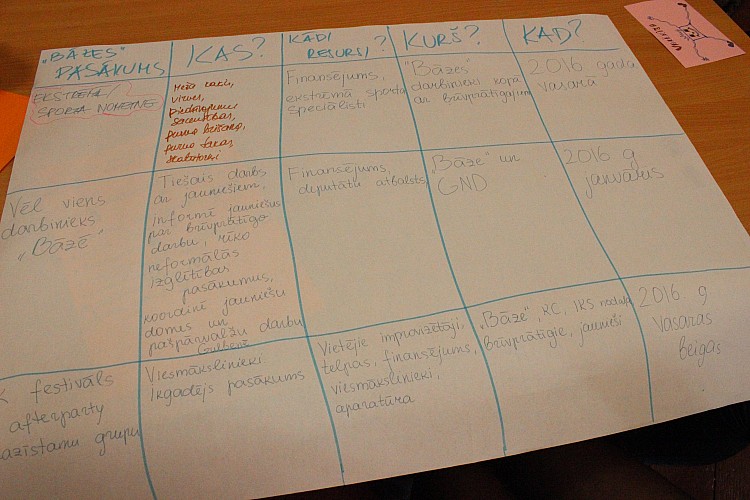 „BĀZES”
PASĀKUMS
KAS?
KĀDI
RESURSI?
KURŠ?
KAD?
EKSTRĒMĀ
SPORTA NOMETNE
Meža taki,
virves,
piedzīvojumu
sacensības,
purva
purva takas
Finansējums,
ekstrēmā sporta
speciālisti
"Bāzes"
darbinieki kopā
ar brīvprātīgajiem
2016 gada
vasara
Vēl viens
darbinieks
„Bāzē”
Tiešais darbs
ar jauniešiem,
informē jauniešus
par brīvprātīgo
darbu, rīko
neformālās
izglītības
pasākumus,
koordinē jauniešu
domes un
pašpārvalžu darbu
Gulbenē
Finansējums,
deputātu atbalsts
„Bāze” un
GND
2016 g
janvāris
festivāls
afterparty
grupu
Viesmākslinieki
Ikgadējs pasākums
Vietējie improvizētāji,
telpas, finansējums,
viesmākslinieki,
aparatūra
„Bāze”, KC, IKS nodaļa
Brīvprātīgie, jaunieši
2016 g
vasaras
beigas